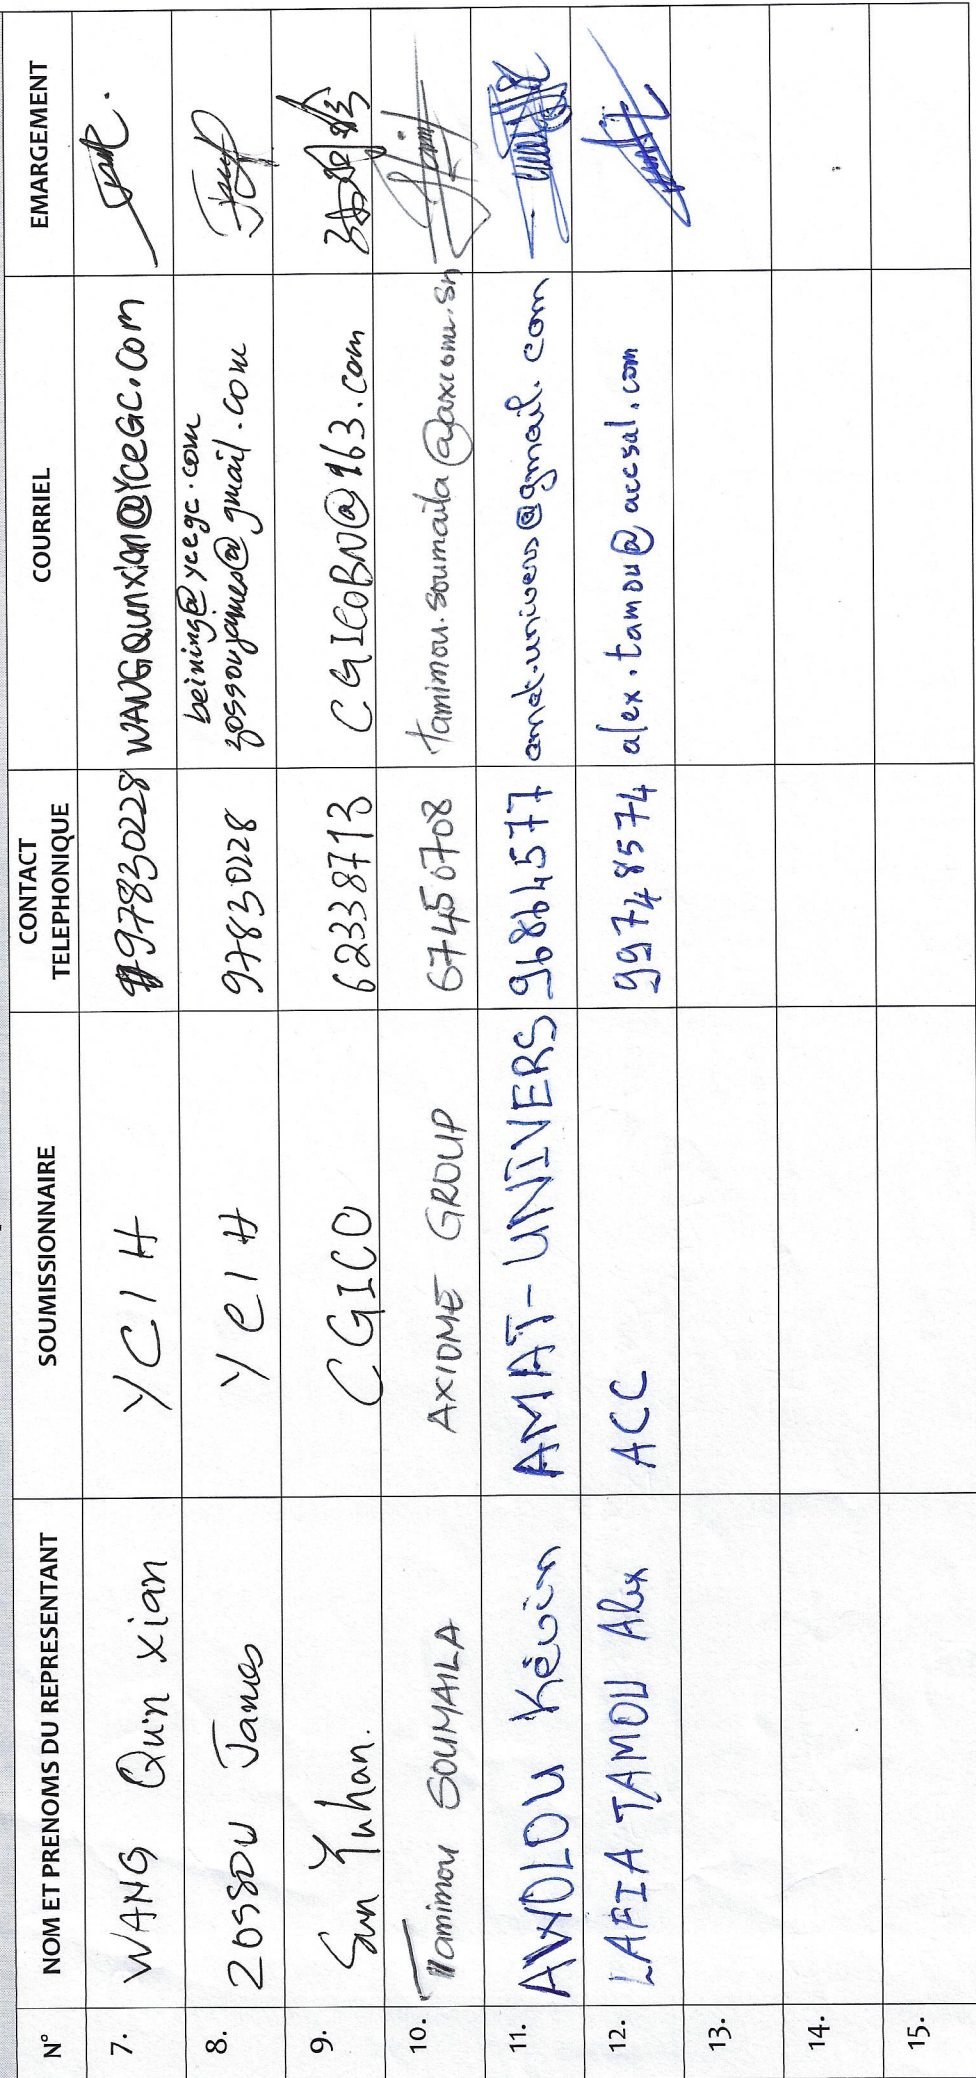 N° NOM ET PRENOMS DU REPRESENTANT SOUMISSIONNAIRE CONTACT TELEPHONIQUE COURRIEL EMARGEMENT
7. WANG Qun Xian YCIH 97830228 WANGQunxian@YCeGC.Com
8. ZOSSOU James YCIH 97830228 beining@ycegc.com
zossoujames@gmail.com
9. Sun Yuhan. CGICO 62338713 CGICOBN@163.com
10. Tamimou SOUMAILA AXIOME GROUP 67450708 tamimou.soumaila@axiome.sn
11. AWOLOU Kévin AMAT-UNIVERS 96864577 amat.univers@gmail.com
12. LAFIA TAMOU Alex ACC 99748574 alex.tamou@accsal.com
13.
14.
15.